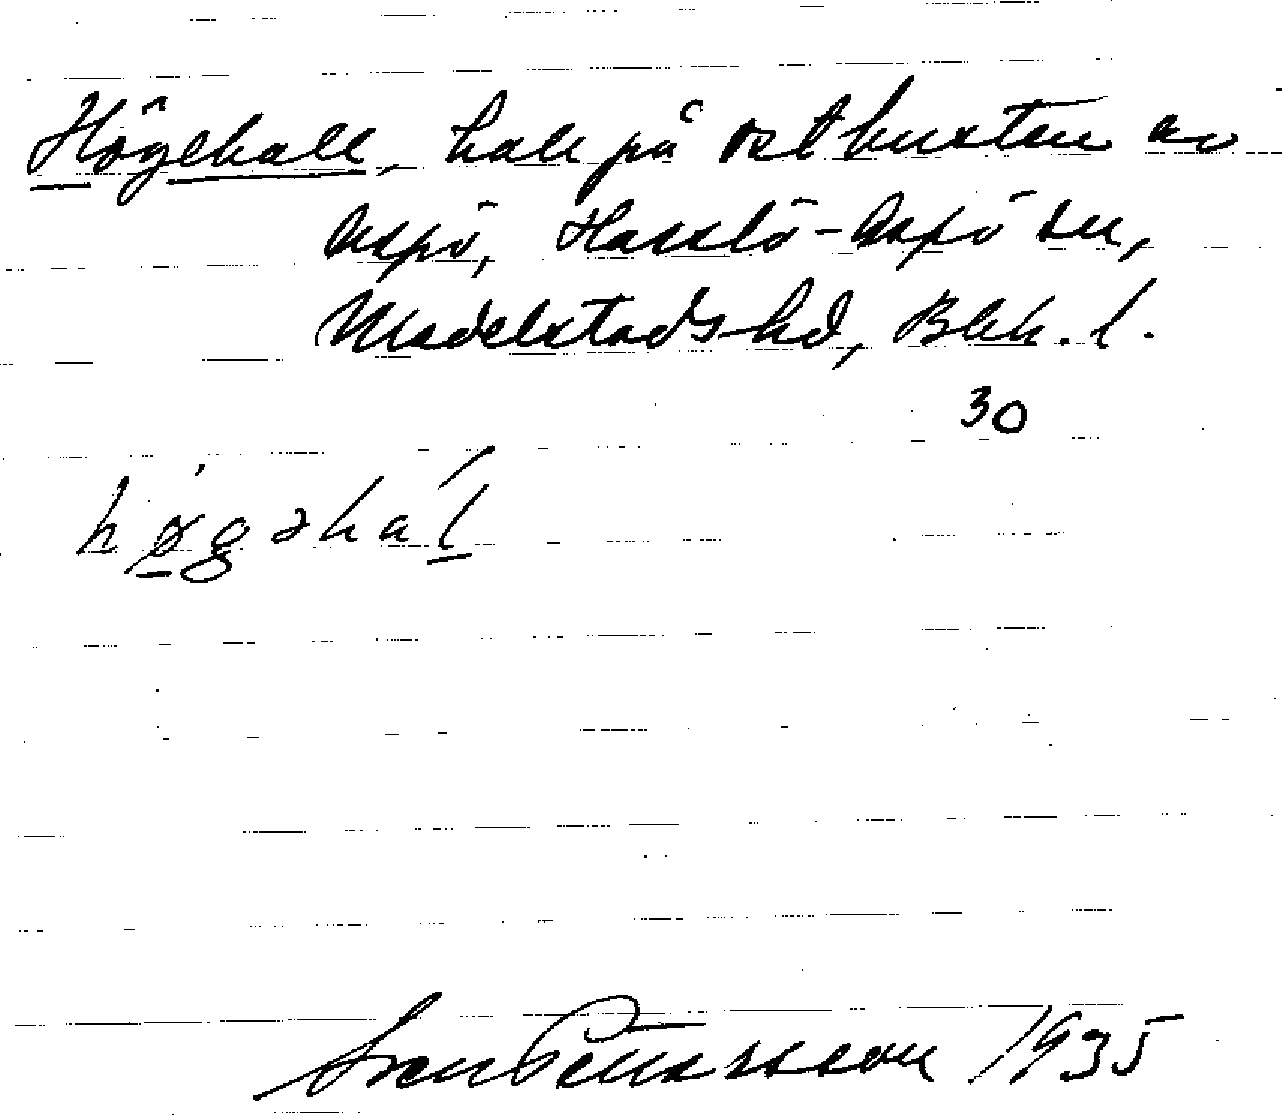 Högehall, hall på östkusten av
Aspö, Hasslö-Aspö sn,
Medelstads hd, Blek. l.
30
høgəhal
Sven Pettersson 1935